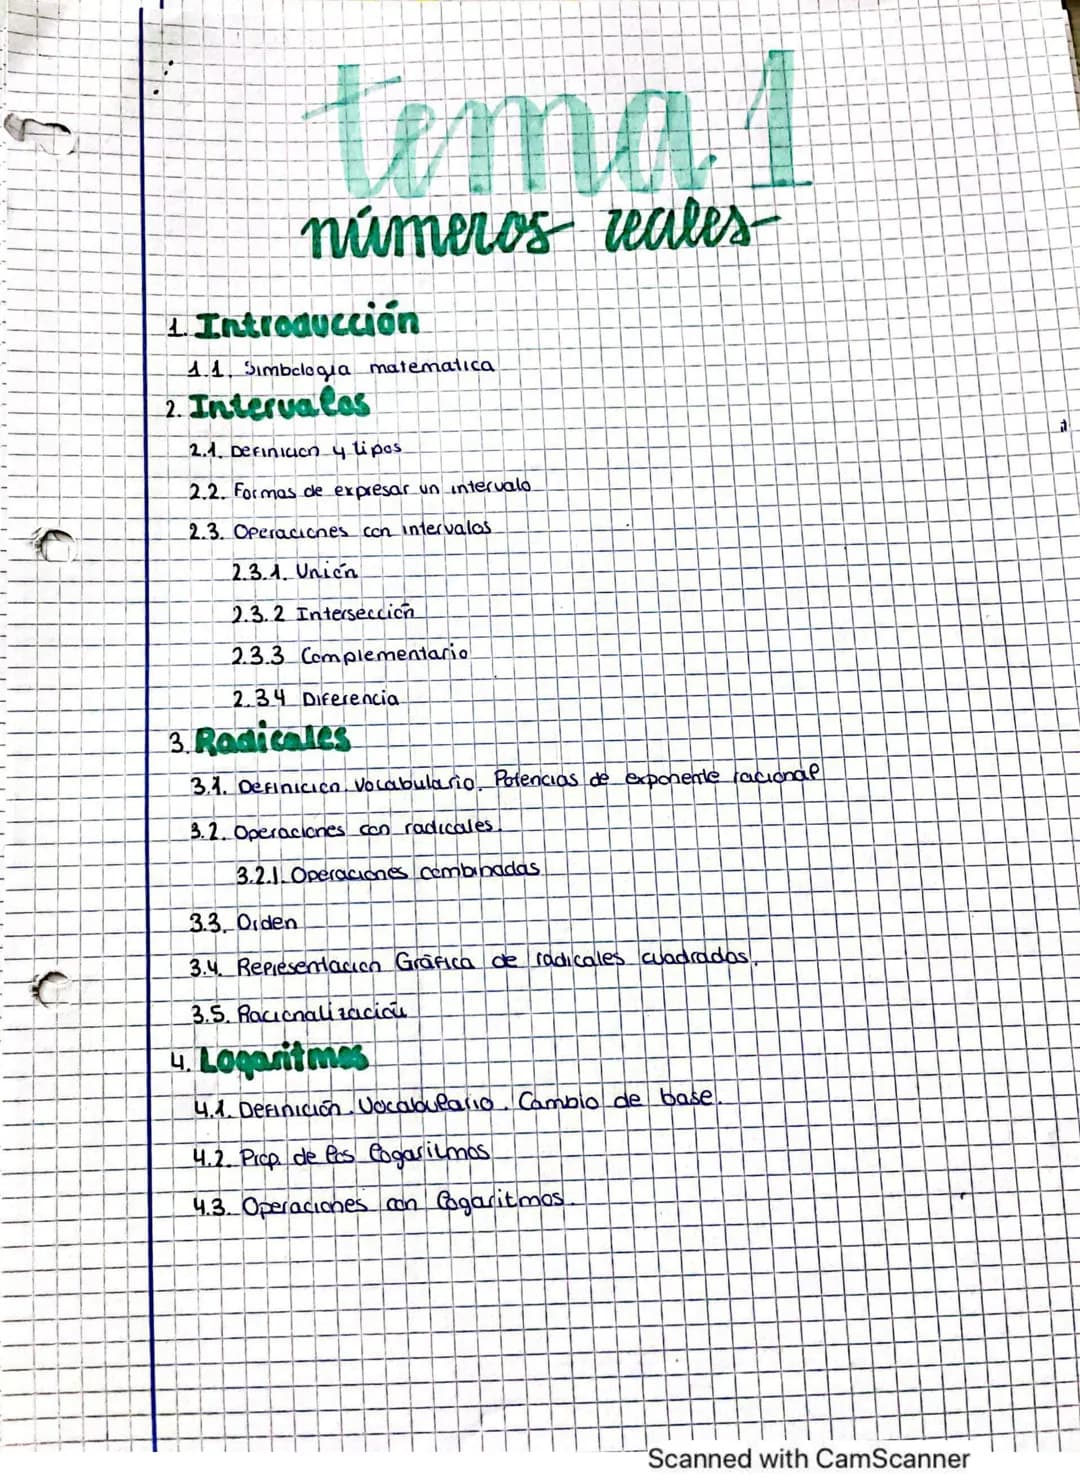 tema 1
números reales
1. Introducción
1.1. Simbología matematica
2. Intervalos
2.1. Definición y tipos
2.2. Formas de expresar un intervalo
2.3. Operaciones con intervalos
2.3.1. Unión
2.3.2 Intersección
2.3.3 Complementario
2.3.4 Diferencia
3. Radicales
3.1. Definición. Vocabulario. Potencias de exponente racional
3.2. Operaciones con radicales.
3.2.1. Operaciones combinadas
3.3. Orden
3.4. Representación Gráfica de radicales cuadrados.
3.5. Racionalización
4. Logaritmos
4.1. Definición. Vocabulario. Cambio de base.
4.2. Prop. de los logaritmos
4.3. Operaciones con logaritmos.
Scanned with CamScanner